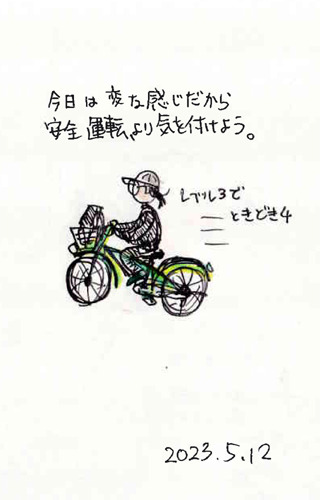 今日は変な感じだから
安全運転、より気を付けよう。
レベル3で
ときどき4
2023.5.12